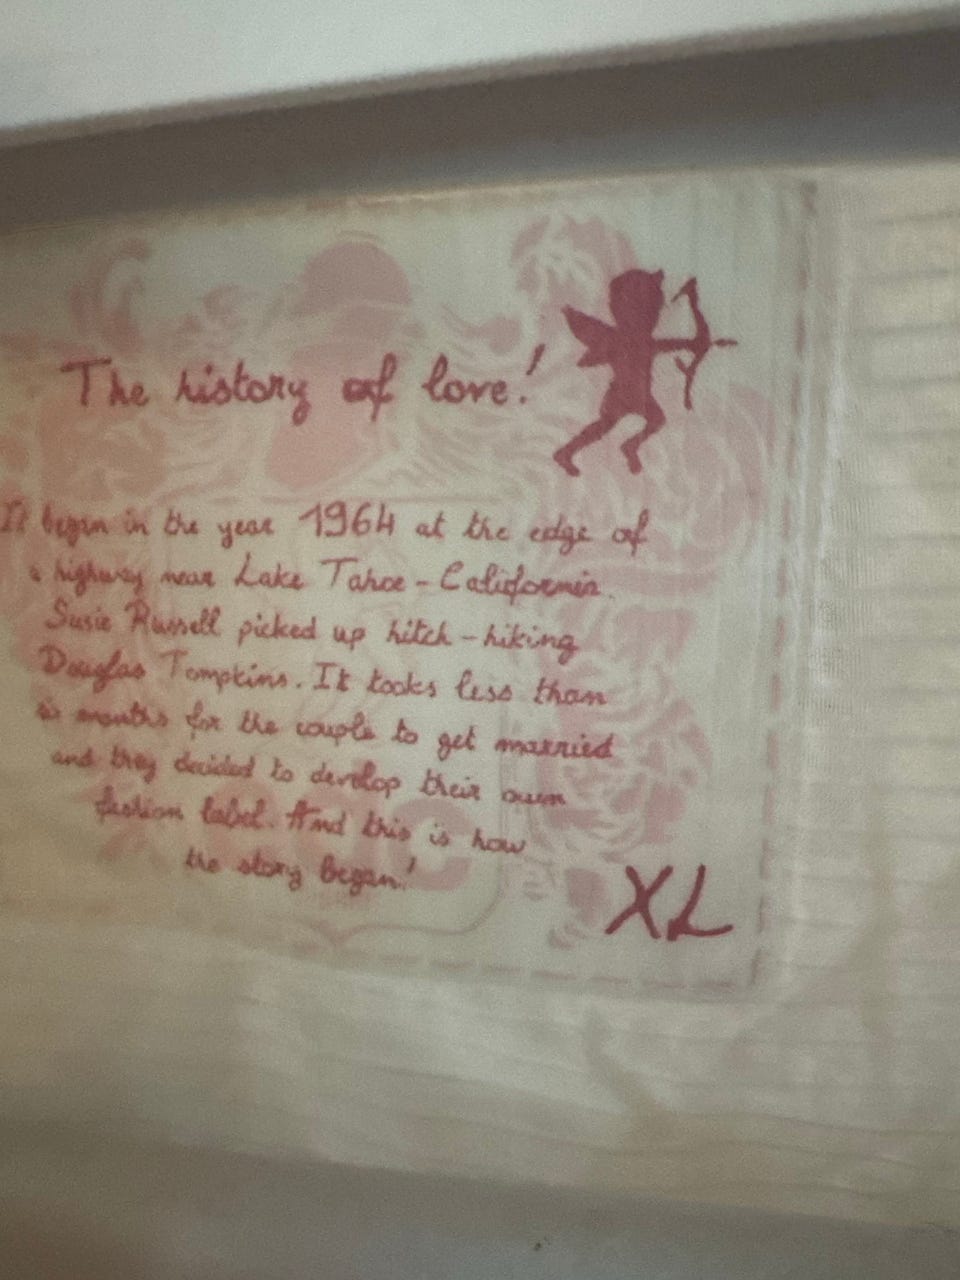 The history of love!
It began in the year 1964 at the edge of
a highway near Lake Tahoe - California.
Susie Russell picked up hitch-hiking
Douglas Tompkins. It tooks less than
six months for the couple to get married
and they decided to develop their own
fashion label. And this is how
the story began!
XL